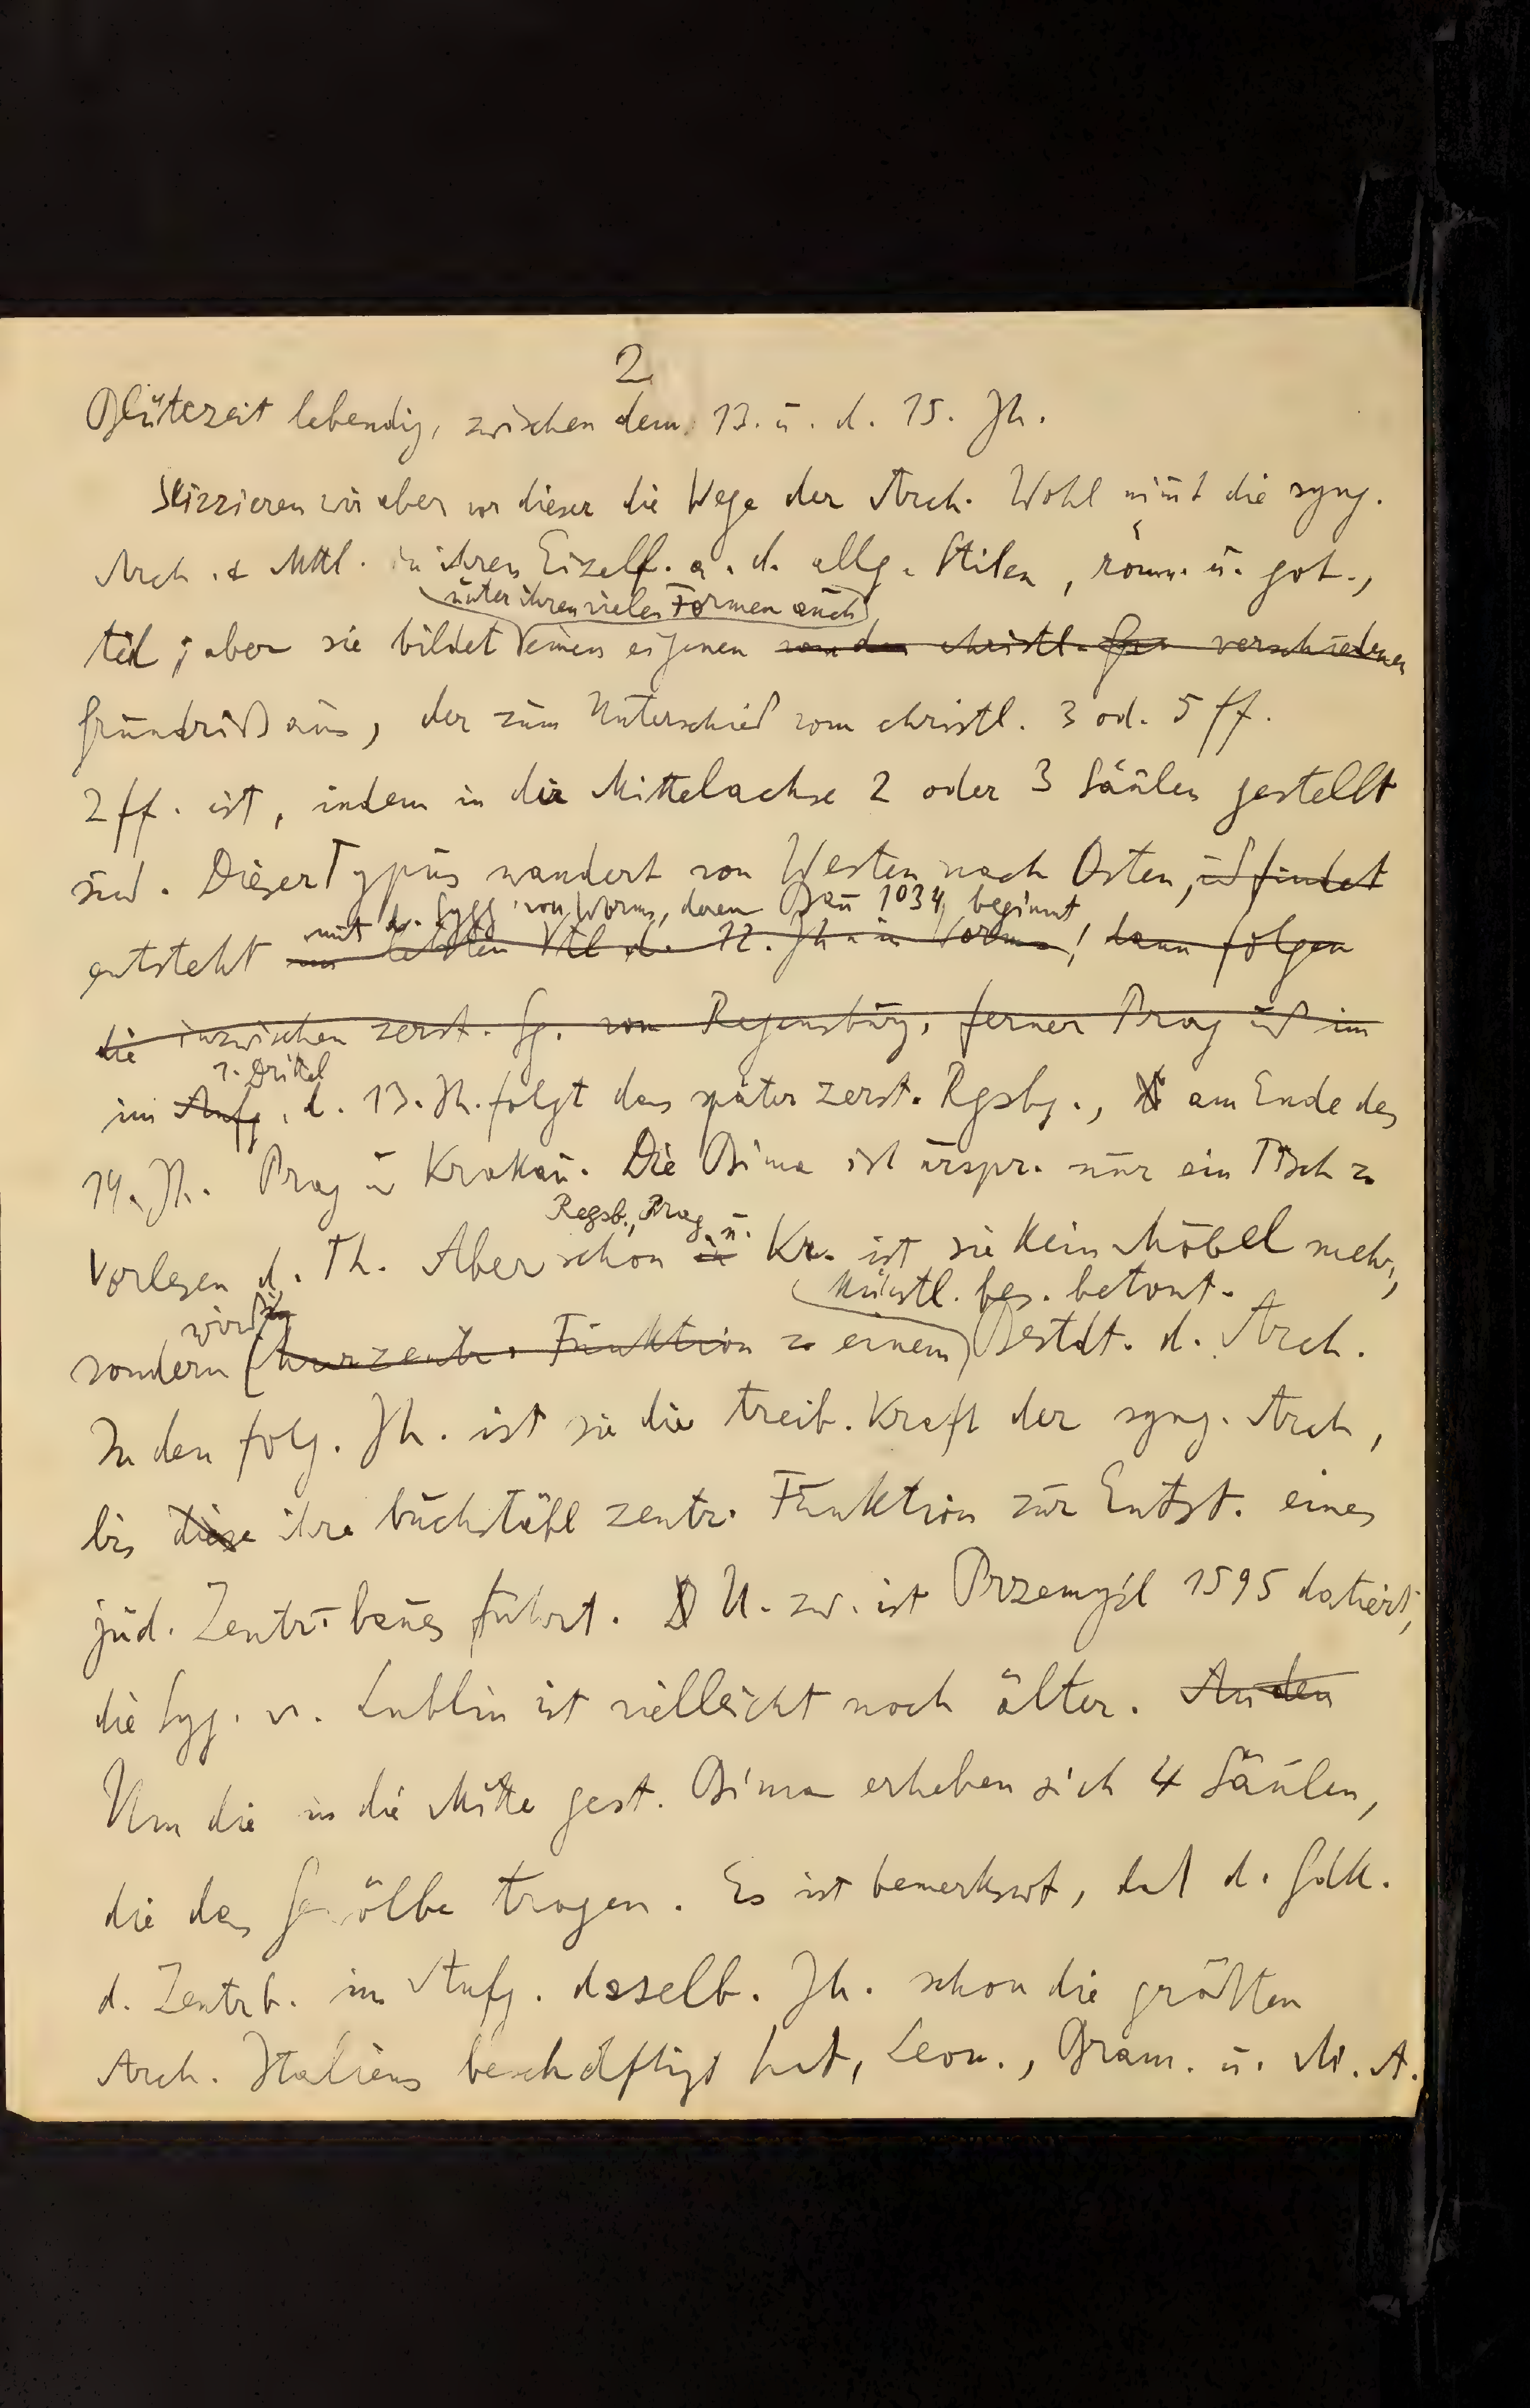 2
Blütezeit lebendig, zwischen dem 13. u. d. 15. Jh.
Skizzieren wir aber vor dieser die Wege der Arch. Wohl nim̄t die syng.
Arch. d. Mttl. in ihren Eizelf. a. d. allg. Stilen, rom. u. got.,
unter ihren vielen Formen auch
teil; aber sie bildet einen eigenen von den christl. Gr verschiedenen
Grundriß aus, der zum Unterschied vom christl. 3 od. 5 ff.
2 ff. ist, indem in die Mittelachse 2 oder 3 Säulen gestellt
sind. Dieser Typus wandert von Westen nach Osten, ud findet
mit d. Sygg von Worms, deren Bau 1034 beginnt
entsteht im letzten Vtl d. 12. Jh in Worms, dann folgen
die inzwischen zerst. Sg. von Regensburg, ferner Prag ud im
1. Drittel
im Anfg. d. 13. Jh. folgt das später zerst. Rgsbg., am Ende des
14. Jh. Prag u Krakau. Die Bima ist urspr. nur ein Tisch z
Regsb., Prag u.
Vorlesen d. Th. Aber schon in Kr. ist sie kein Möbel mehr,
künstl. bes. betont.
wird sie
sondern (kurzentr. Funktion z einem) Bestdt. d. Arch.
In den folg. Jh. ist sie die treib. Kraft der syng. Arch,
bis diese ihre buchstäbl zentr. Funktion zur Entst. eines
jüd. Zentr. baues führt. U. zw. ist Przemyśl 1595 datiert,
die Syg. v. Lublin ist vielleicht noch älter. An den
Um die in die Mitte gest. Bima erheben sich 4 Säulen,
die das Gewölbe tragen. Es ist bemerkswt, daß d. Gdk.
d. Zentrb. im Anfg. dsselb. Jh. schon die größten
Arch. Italiens beschäftigt hat, Leon., Bram. u. M. A.